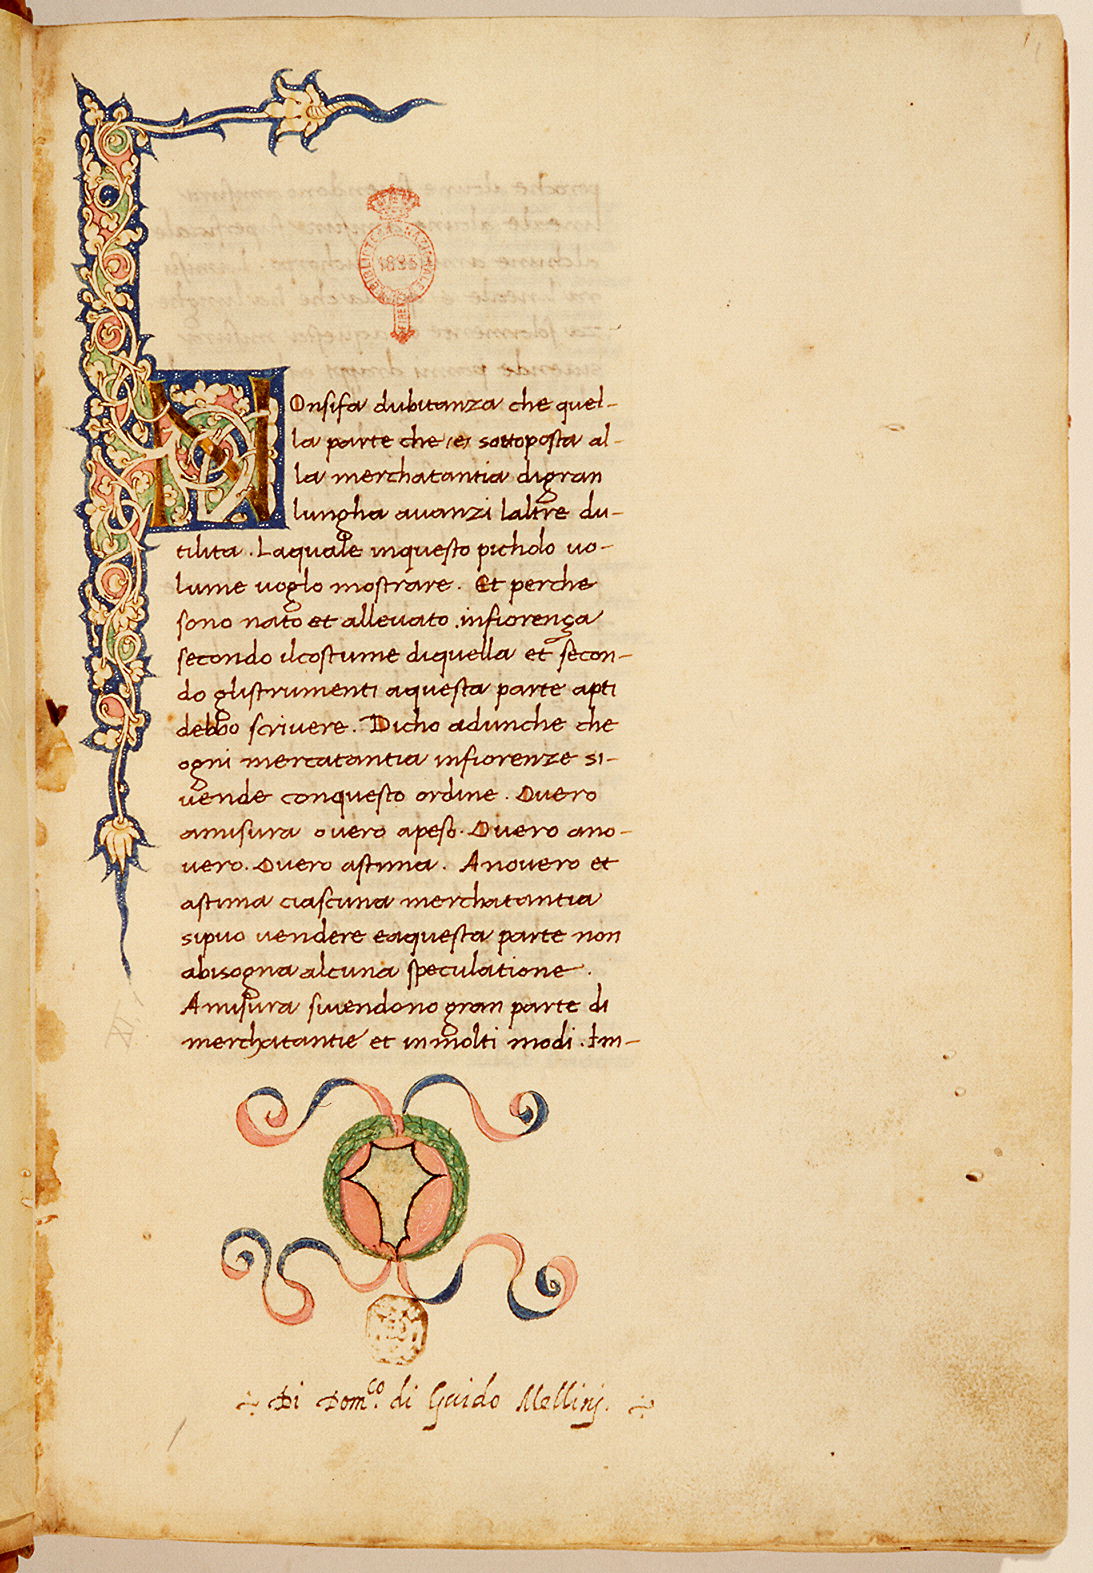 BIBLIOTECA NAZIONALE
1893
Nonsifa dubitanza che quel-
la parte che e sottoposta al-
la merchatantia digran
lungha auanzi laltre du-
tilita . Laquale inquesto picholo uo-
lume uoglo mostrare . Et perche
sono nato et alleuato infiorença
secondo ilcostume diquella et secon-
do glistrumenti aquesta parte apti
debbo scriuere . Dicho adunche che
ogni mercatantia infiorenze si-
uende conquesto ordine . Ouero
amisura ouero apeso . Ouero ano-
uero . Ouero astima . Anouero et
astima ciascuna merchatantia
sipuo uendere eaquesta parte non
abisogna alcuna speculatione .
Amisura siuendono gran parte di
merchatantie et inmolti modi . Im-
Di Dom.co di Guido Mellinj.